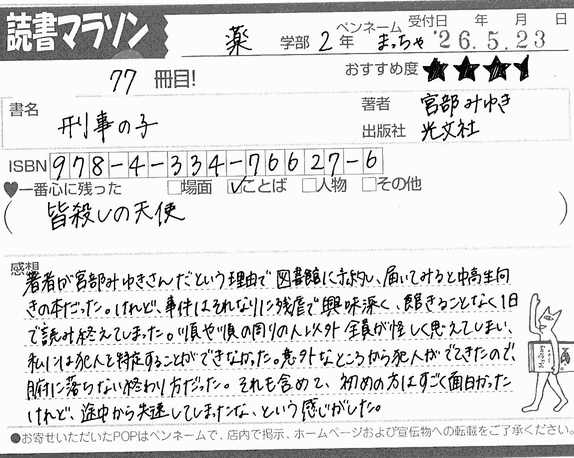 読書マラソン
薬 学部 2 年 ペンネーム まっちゃ 受付日 年 月 日 '26.5.23
77 冊目! おすすめ度 ★★★
書名 刑事の子
著者 宮部みゆき
出版社 光文社
ISBN 978-4-334-76627-6
♥一番心に残った □場面 ☑ことば □人物 □その他
(皆殺しの天使)
感想
著者が宮部みゆきさんだという理由で図書館に予約し、届いてみると中高生向
きの本だった。けれど、事件はそれなりに残虐で興味深く、飽きることなく1日
で読み終えてしまった。順や順の周りの人以外全員が怪しく思えてしまい、
私には犯人を特定することができなかった。意外なところから犯人がでてきたので、
腑に落ちない終わり方だった。それも含めて、初めの方はすごく面白かった
けれど、途中から失速してしまったな、という感じがした。
●お寄せいただいたPOPはペンネームで、店内で掲示、ホームページおよび宣伝物への転載をご了承ください。